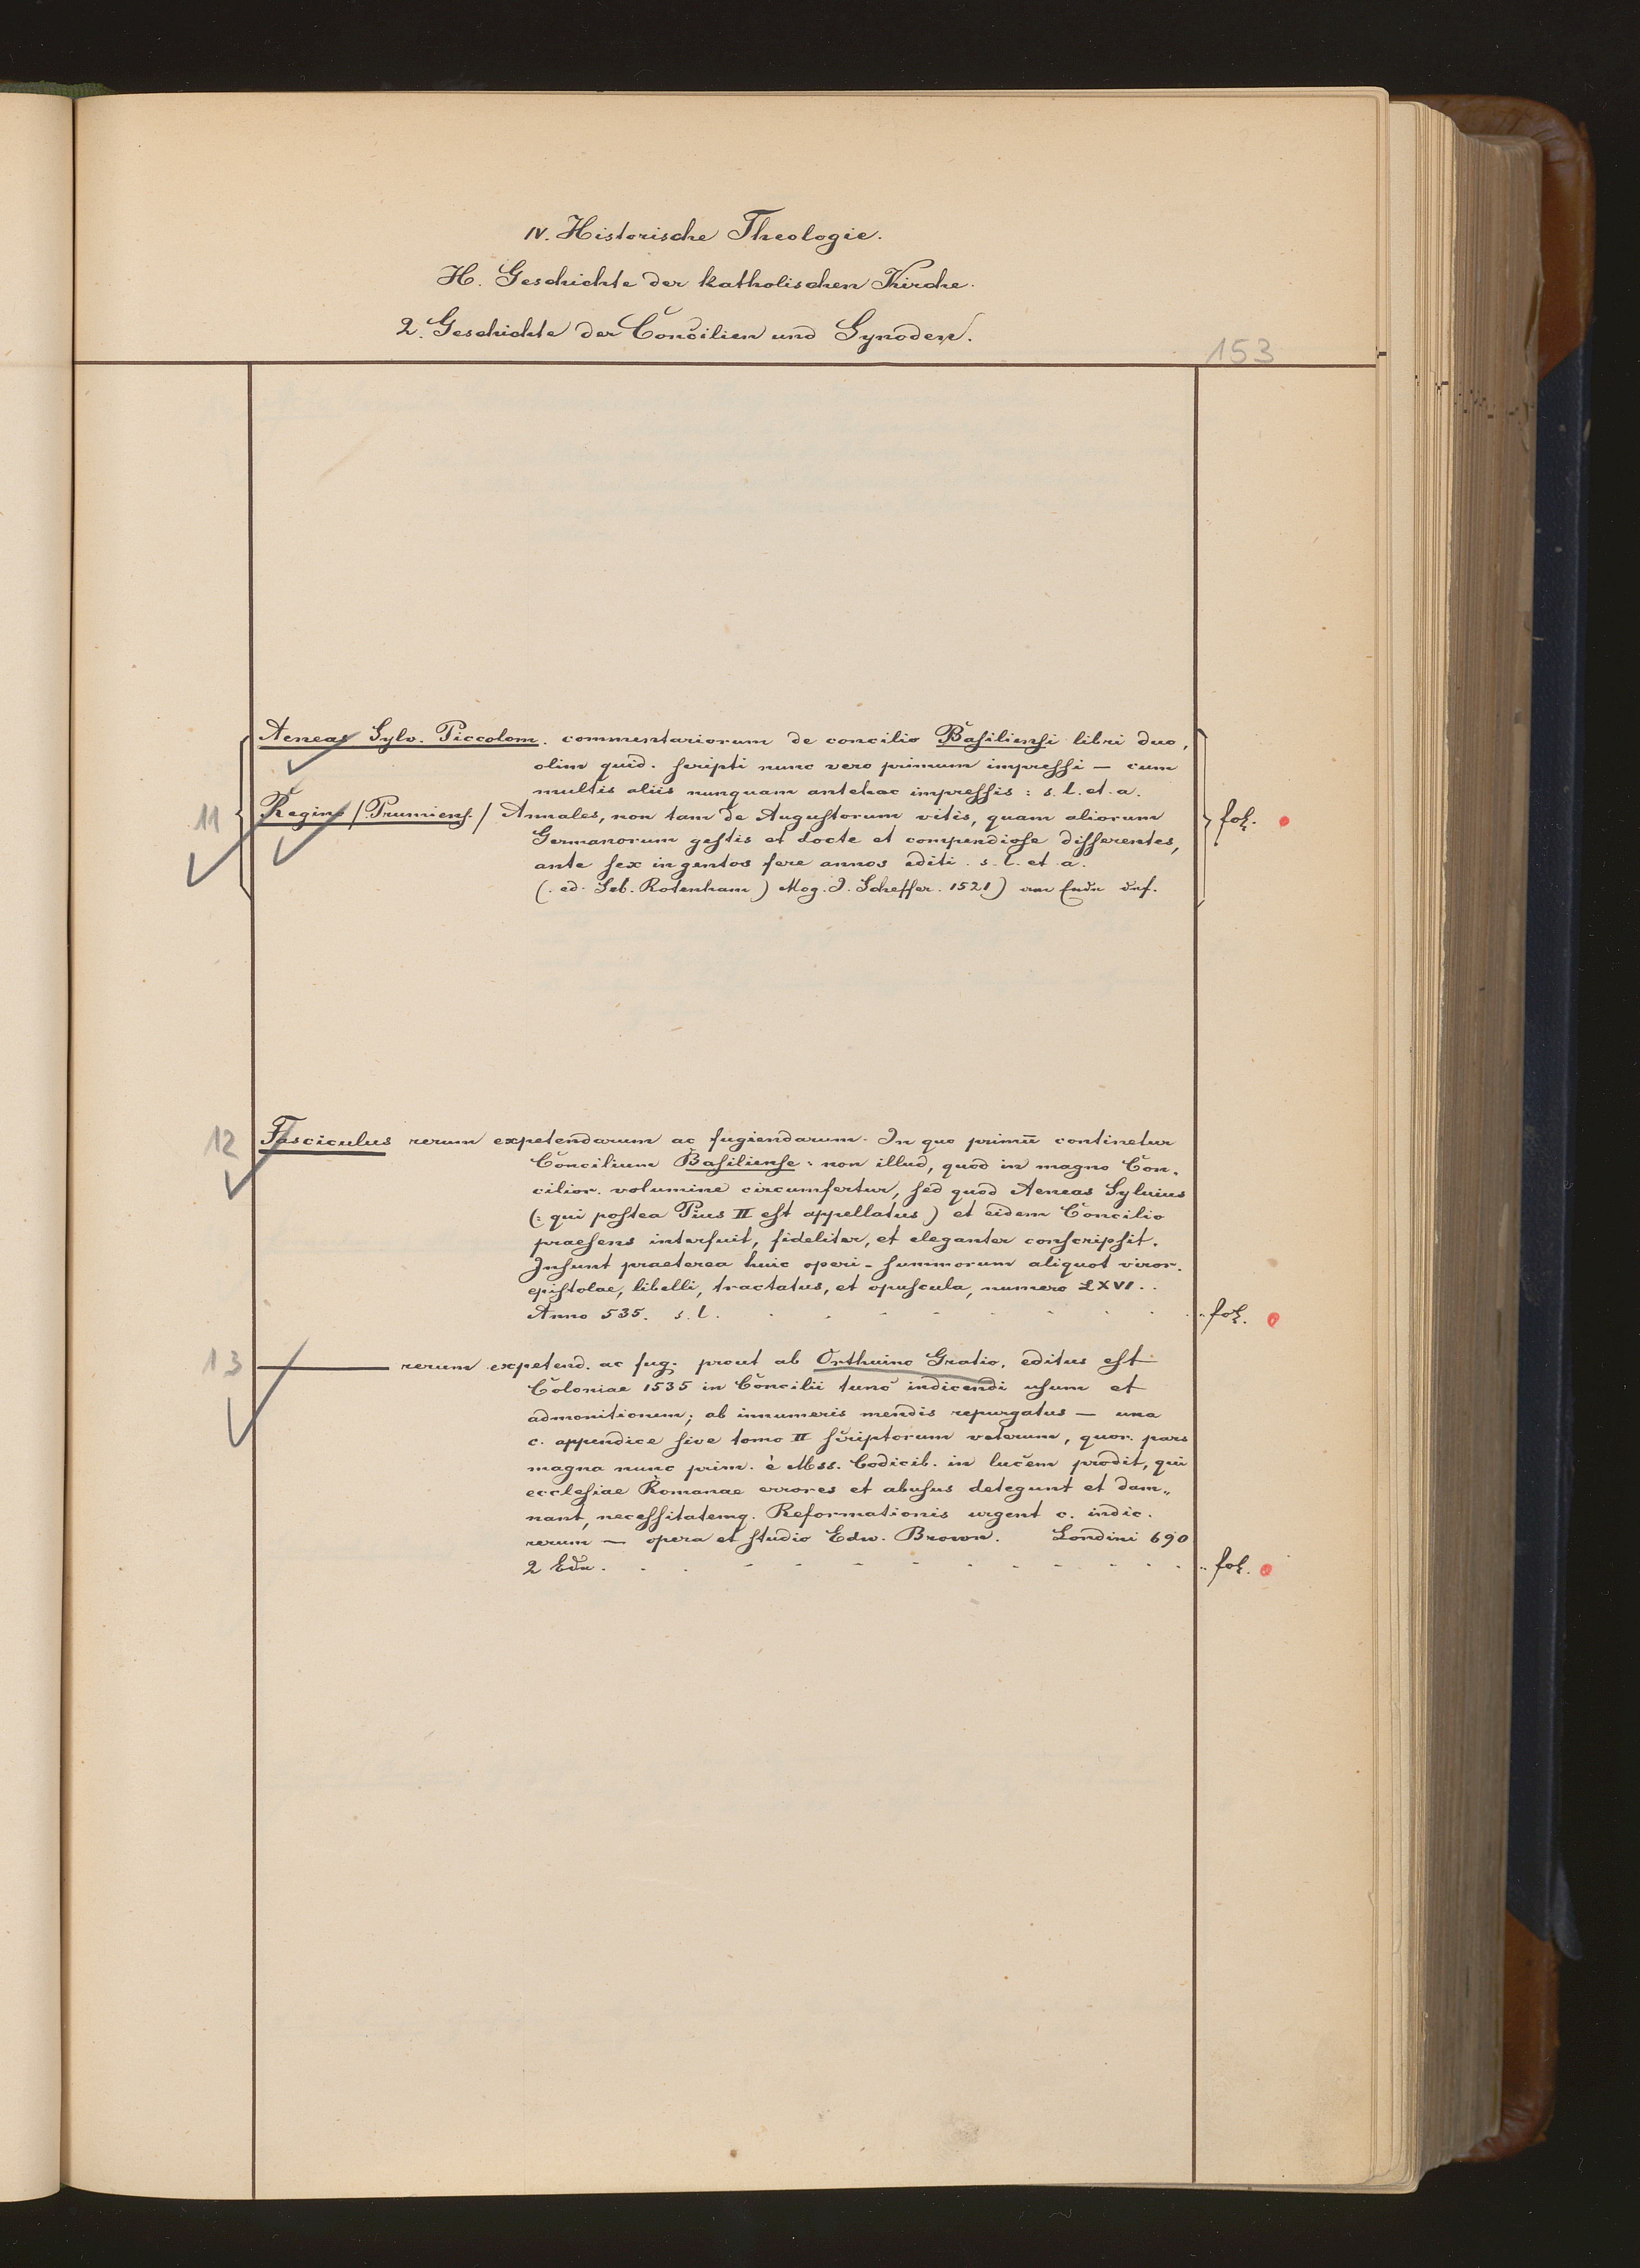 IV. Historische Theologie.
H. Geschichte der katholischen Kirche.
2. Geschichte der Concilien und Synoden.
153
Aeneas Sylv. Piccolom. commentariorum de concilio Basiliensi libri duo,
olim quid. scripti nunc vero primum impressi — cum
multis aliis nunquam antehac impressis : s. l. et. a.
11 Regino /Prumiens./ Annales, non tam de Augustorum vitis, quam aliorum fol.
Germanorum gestis et docte et compendiose disserentes,
ante sex ingentos fere annos editi. s. l. et a.
(. ed. Seb. Rotenham) Mog. J. Scheffer. 1521) am Ende def.
12 Fasciculus rerum expetendarum ac fugiendarum. In quo primū continetur
Concilium Basiliense : non illud, quod in magno Con-
cilior. volumine circumfertur, sed quod Aeneas Sylvius
(: qui postea Pius II est appellatus) et eidem Concilio
praesens interfuit, fideliter, et eleganter conscripsit.
Insunt praeterea huic operi - summorum aliquot viror.
epistolae, libelli, tractatus, et opuscula, numero LXVI..
Anno 535. s. l. fol.
13 ——— rerum expetend. ac fug. prout ab Orthuino Gratio, editus est
Coloniae 1535 in Concilii tunc indicendi usum et
admonitionem; ab innumeris mendis repurgatus — una
c. appendice sive tomo II scriptorum veterum, quor. pars
magna nunc prim. è Mss. Codicib. in lucem prodit, qui
ecclesiae Romanae errores et abusus detegunt et dam-
nant, necessitatemq. Reformationis urgent c. indic.
rerum — opera et studio Edw. Brown. Londini 690
2 Bde. fol.